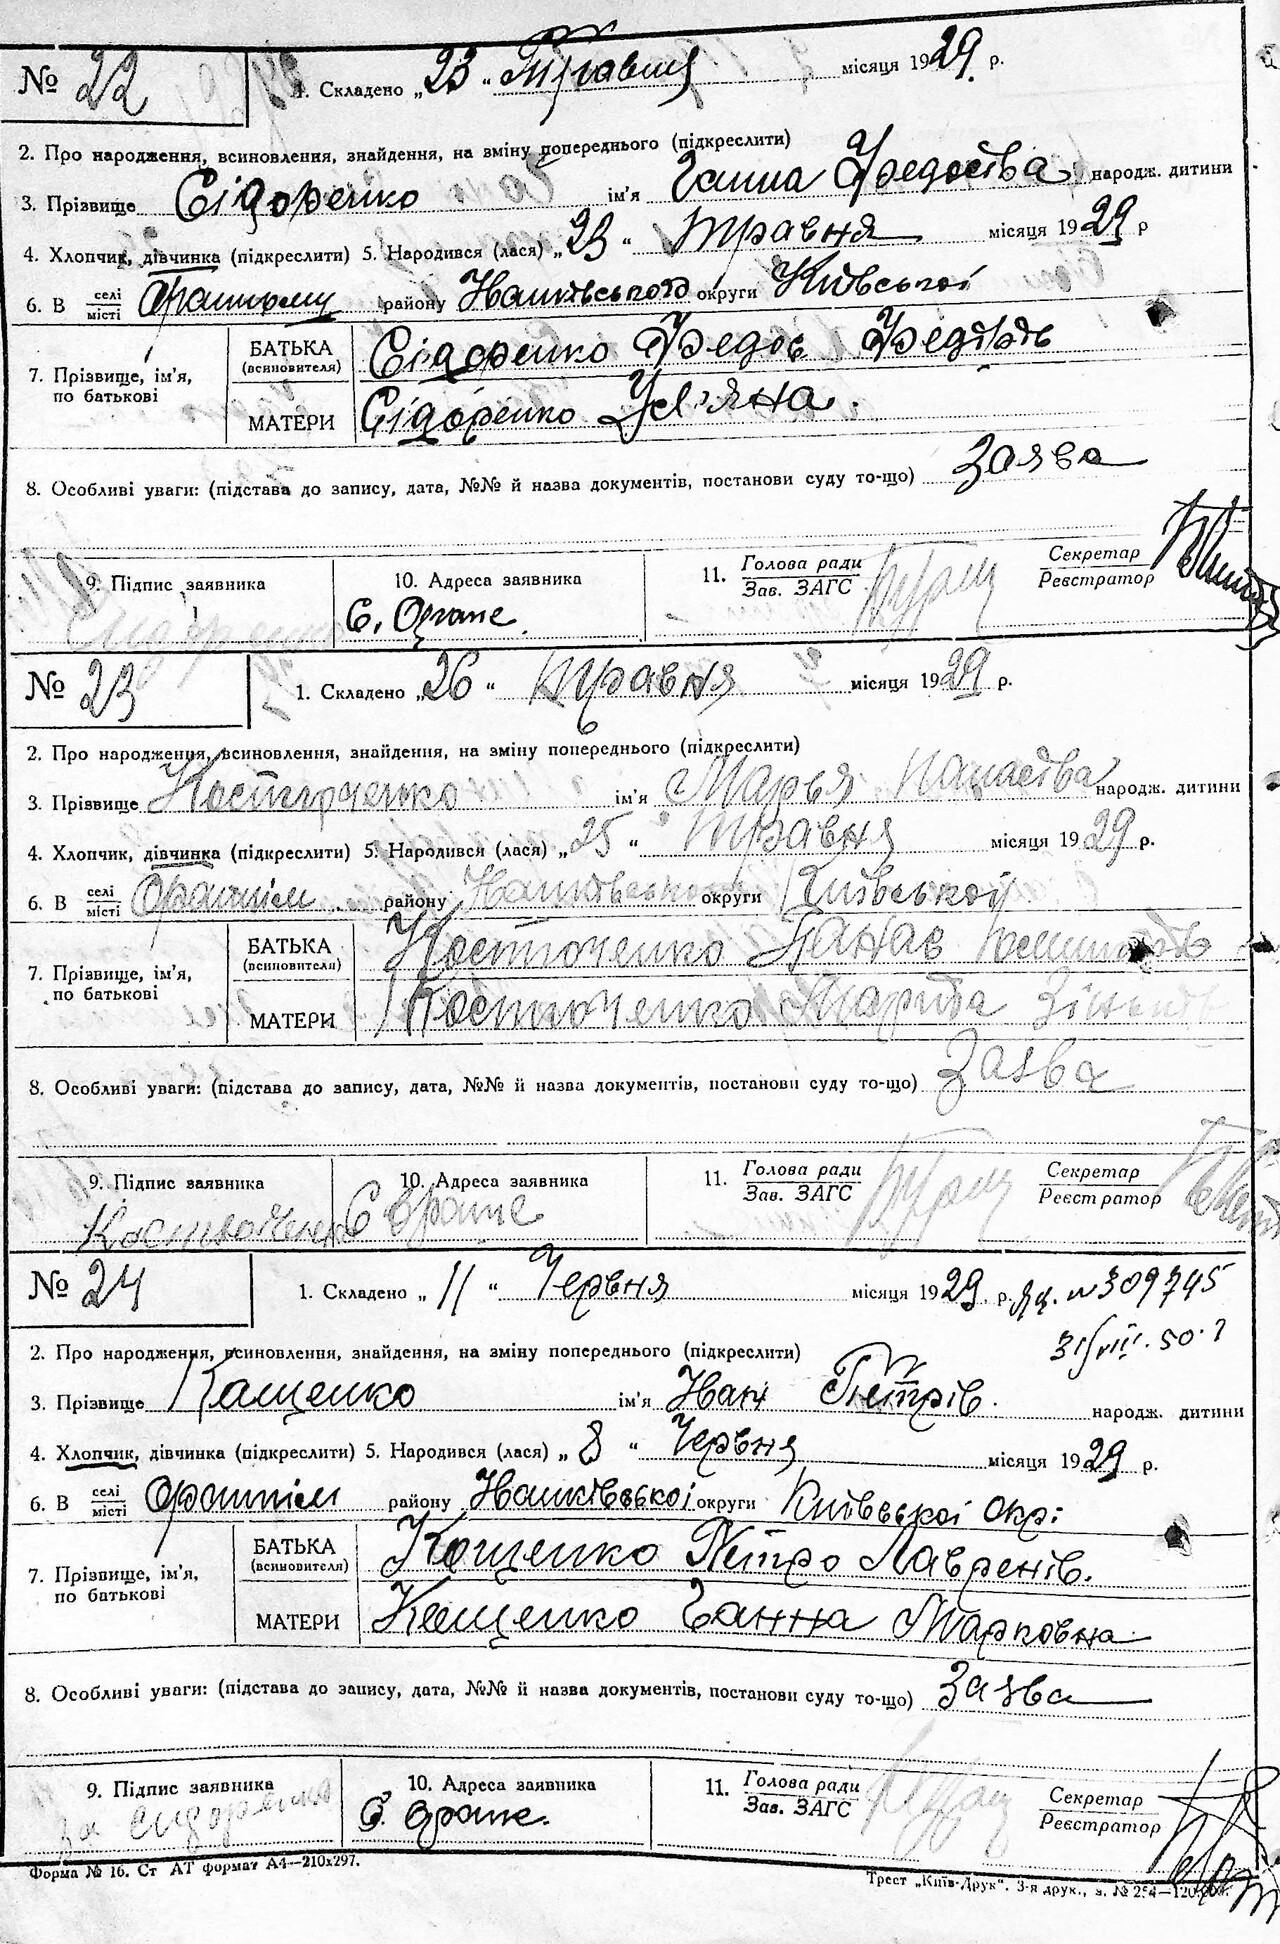 № 22 1. Складено „23" Травня місяця 1929 р.
2. Про народження, всиновлення, знайдення, на зміну попереднього (підкреслити)
3. Прізвище Сідоренко ім'я Ганна Федосіва народж. дитини
4. Хлопчик, дівчинка (підкреслити) 5. Народився (лася) „23" травня місяця 1929 р
6. В селі місті Ораному району Іванківського округи Київської
7. Прізвище, ім'я, по батькові
БАТЬКА (всиновителя) Сідоренко Федос
МАТЕРИ Сідоренко Уляна.
8. Особливі уваги: (підстава до запису, дата, №№ й назва документів, постанови суду то-що) Заява
9. Підпис заявника 10. Адреса заявника 11. Голова ради Зав. ЗАГС Секретар Реєстратор
Сидоренко с. Оране
№ 23 1. Складено „26" травня місяця 1929 р.
2. Про народження, всиновлення, знайдення, на зміну попереднього (підкреслити)
3. Прізвище Костюченко ім'я Марья Панасіва народж. дитини
4. Хлопчик, дівчинка (підкреслити) 5. Народився (лася) „25" травня місяця 1929 р.
6. В селі місті Оранпім району Іванківського округи Київської
7. Прізвище, ім'я, по батькові
БАТЬКА (всиновителя) Костюченко Панас
МАТЕРИ Костюченко
8. Особливі уваги: (підстава до запису, дата, №№ й назва документів, постанови суду то-що) Заява
9. Підпис заявника 10. Адреса заявника 11. Голова ради Зав. ЗАГС Секретар Реєстратор
Костюченко С Оране
№ 24 1. Складено „11" Червня місяця 1929 р. № 309745
31/VIII.50 г
2. Про народження, всиновлення, знайдення, на зміну попереднього (підкреслити)
3. Прізвище Кащенко ім'я Іван Петрів. народж. дитини
4. Хлопчик, дівчинка (підкреслити) 5. Народився (лася) „8" Червня місяця 1929 р.
6. В селі місті Оранпім району Іванківської округи Київської Окр:
7. Прізвище, ім'я, по батькові
БАТЬКА (всиновителя) Кощенко Петро Лавренів.
МАТЕРИ Кащенко Ганна Марковна
8. Особливі уваги: (підстава до запису, дата, №№ й назва документів, постанови суду то-що) Заява
9. Підпис заявника 10. Адреса заявника 11. Голова ради Зав. ЗАГС Секретар Реєстратор
за Сидоренко С. Оране.
Форма № 16. Ст АТ формат А4—210х297. Трест „Київ-Друк". 3-я друк., з. № 254—120.000.